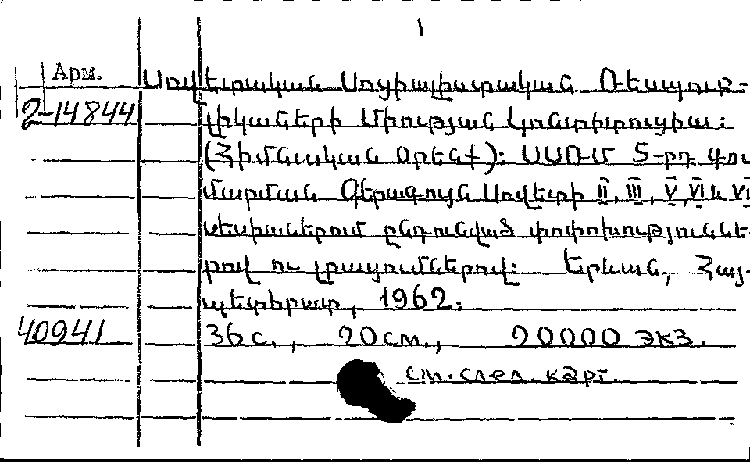 1
Арм.
Սովետական Սոցիալիստական Ռեսպուբ-
2-14844
լիկաների Միության Կոնստիտուցիա:
(Հիմնական Օրենք): ՍՍՌՄ 5-րդ գու
մարման Գերագույն Սովետի II, III, V, VI և VI
սեսիաներում ընդունված փոփոխություննե-
րով ու լրացումներով: Երևան, Հայ-
պետհրատ, 1962.
40941
36 с., 20 см., 20000 экз.
см. след. карт.